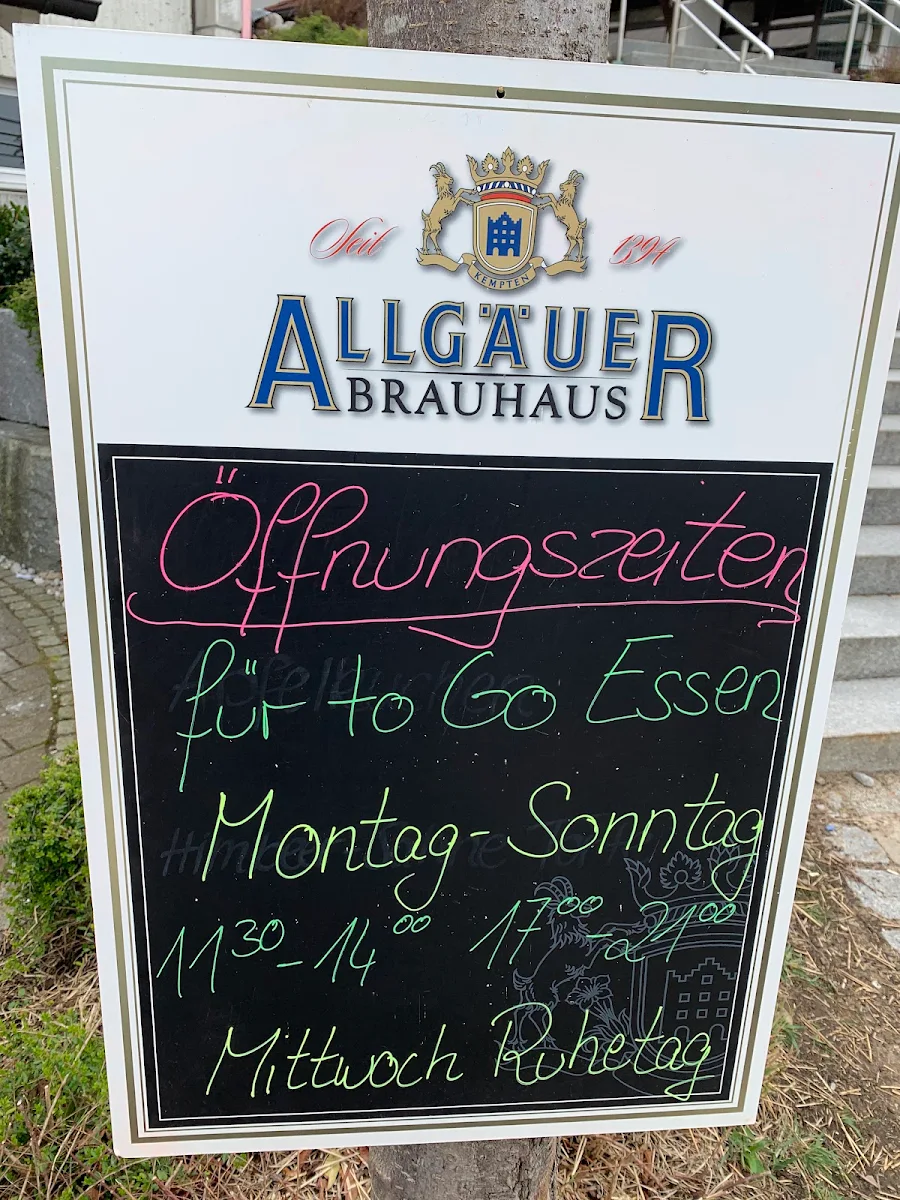 Seit 1394
KEMPTEN
ALLGÄUER
BRAUHAUS
Öffnungszeiten
für to Go Essen
Montag - Sonntag
11³⁰ - 14⁰⁰ 17⁰⁰ - 21⁰⁰
Mittwoch Ruhetag